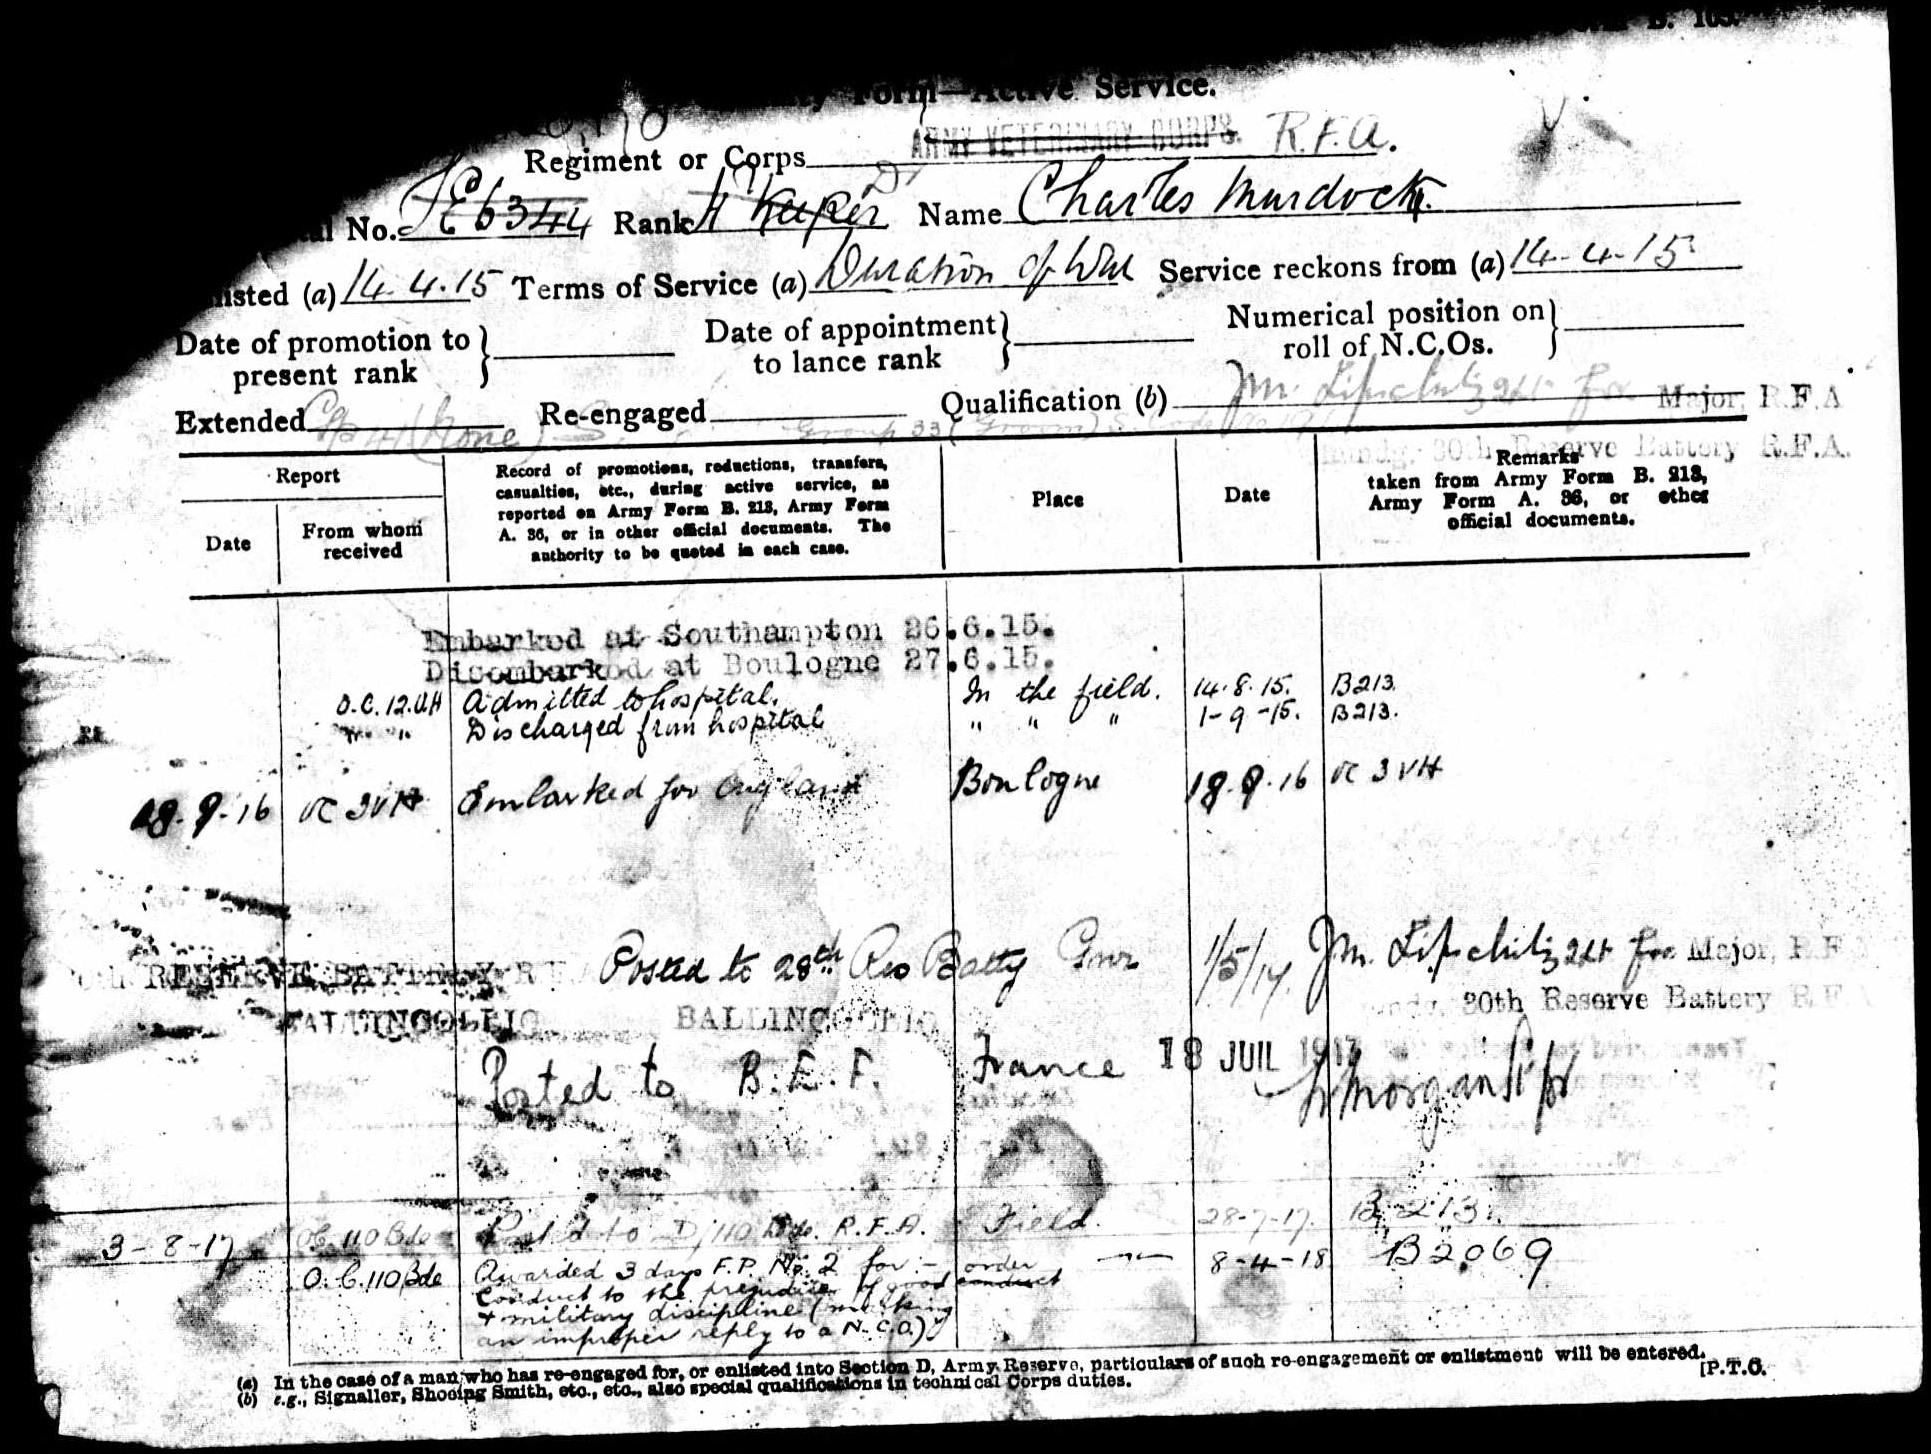 B. 103.
Form—Active Service.
Regiment or Corps ARMY VETERINARY CORPS. R.F.A.
No. SE6344 Rank H Keeper Dr Name Charles Murdock.
listed (a) 14.4.15 Terms of Service (a) Duration of War Service reckons from (a) 14-4-15
Date of promotion to present rank } Date of appointment to lance rank } Numerical position on roll of N.C.Os. }
Extended Re-engaged Qualification (b) Jm. Lipschitz 2Lt for Major, R.F.A
Group 33 (Groom)
30th Reserve Battery R.F.A.
Report
Date
From whom received
Record of promotions, reductions, transfers, casualties, etc., during active service, as reported on Army Form B. 213, Army Form A. 36, or in other official documents. The authority to be quoted in each case.
Place
Date
Remarks taken from Army Form B. 213, Army Form A. 36, or other official documents.
Embarked at Southampton 26.6.15.
Disembarked at Boulogne 27.6.15.
O.C. 12.V.H Admitted to hospital. In the field. 14.8.15. B213.
" " Discharged from hospital " " " 1-9-15. B213.
18.9.16 OC 3VH Embarked for England Boulogne 18.9.16 OC 3VH
RESERVE BATTERY R Posted to 28th Res Batty 1/5/17. Jm. Lipschitz 2Lt for Major, R.F.A
BALLINCOLLIG BALLINCOLLIG 30th Reserve Battery R.F.A
Posted to B.E.F. France 18 JUIL 1917 Morgan
3-8-17 OC. 110 Bde Posted to D/110 Bde. R.F.A. Field. 28-7-17. B 213.
O.C. 110 Bde Awarded 3 days F.P. No. 2 for :- order 8-4-18 B2069
Conduct to the prejudice of good conduct
& military discipline (making
an improper reply to a N.C.O.)
(a) In the case of a man who has re-engaged for, or enlisted into Section D, Army Reserve, particulars of such re-engagement or enlistment will be entered.
(b) e.g., Signaller, Shoeing Smith, etc., etc., also special qualifications in technical Corps duties.
[P.T.O.